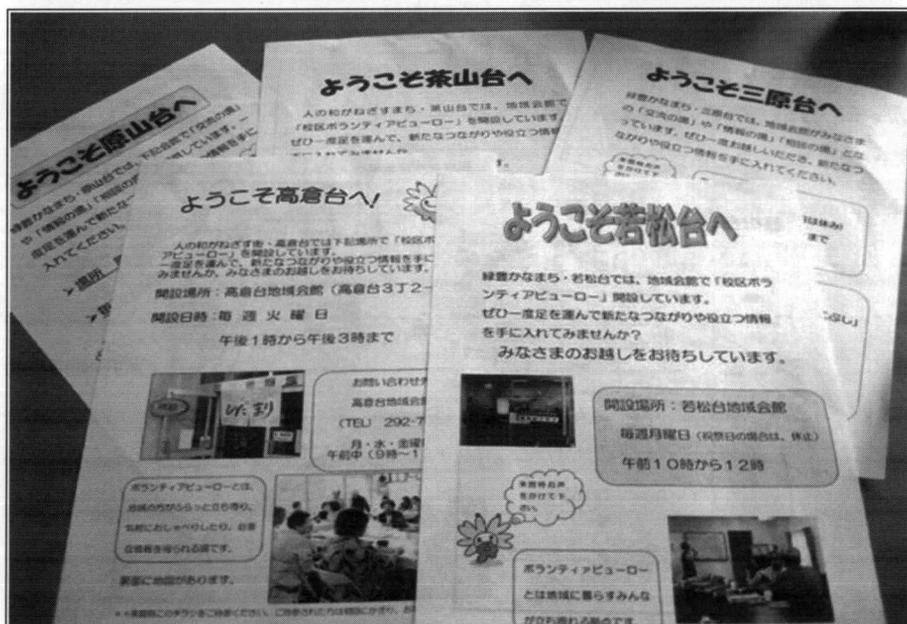 ようこそ原山台へ
や「情報の場」「相談の
入れてください。
ようこそ茶山台へ
人の和がねざすまち・茶山台では、地域会館で
「校区ボランティアビューロー」を開設しています
ぜひ一度足を運んで、新たなつながりや役立つ情報
ようこそ三原台へ
緑豊かなまち・三原台では、地域会館がみなさま
の「交流の場」や「情報の場」「相談の場」とな
っています。ぜひ一度お越しいただき、新たなつ
ながりや役立つ情報を手に入れてください。
まで
ようこそ高倉台へ!
人の和がねざす街・高倉台では下記場所で「校区ボ
アビューロー」を開設しています。
一度足を運んで、新たなつながりや役立つ情報を手に
みませんか。みなさまのお越しをお待ちしています。
開設場所:高倉台地域会館(高倉台3丁2-
開設日時:毎週火曜日
午後1時から午後3時まで
お問い合わせ
高倉台地域会
(TEL 292-7
月・水・金曜
午前中(9時~1
ボランティアビューローとは、
地域の方がふらっと立ち寄り、
気軽におしゃべりしたり、必要
な情報を得られる場です。
裏面に地図があります。
ようこそ若松台へ
緑豊かなまち・若松台では、地域会館で「校区ボラ
ンティアビューロー」開設しています。
ぜひ一度足を運んで新たなつながりや役立つ情報
を手に入れてみませんか?
みなさまのお越しをお待ちしています。
開設場所:若松台地域会館
毎週月曜日(祝祭日の場合は、休止)
午前10時から12時
来館時お声
をかけてく
ださい。
ボランティアビューロー
とは地域に暮らすみんな
が立ち寄れる拠点です